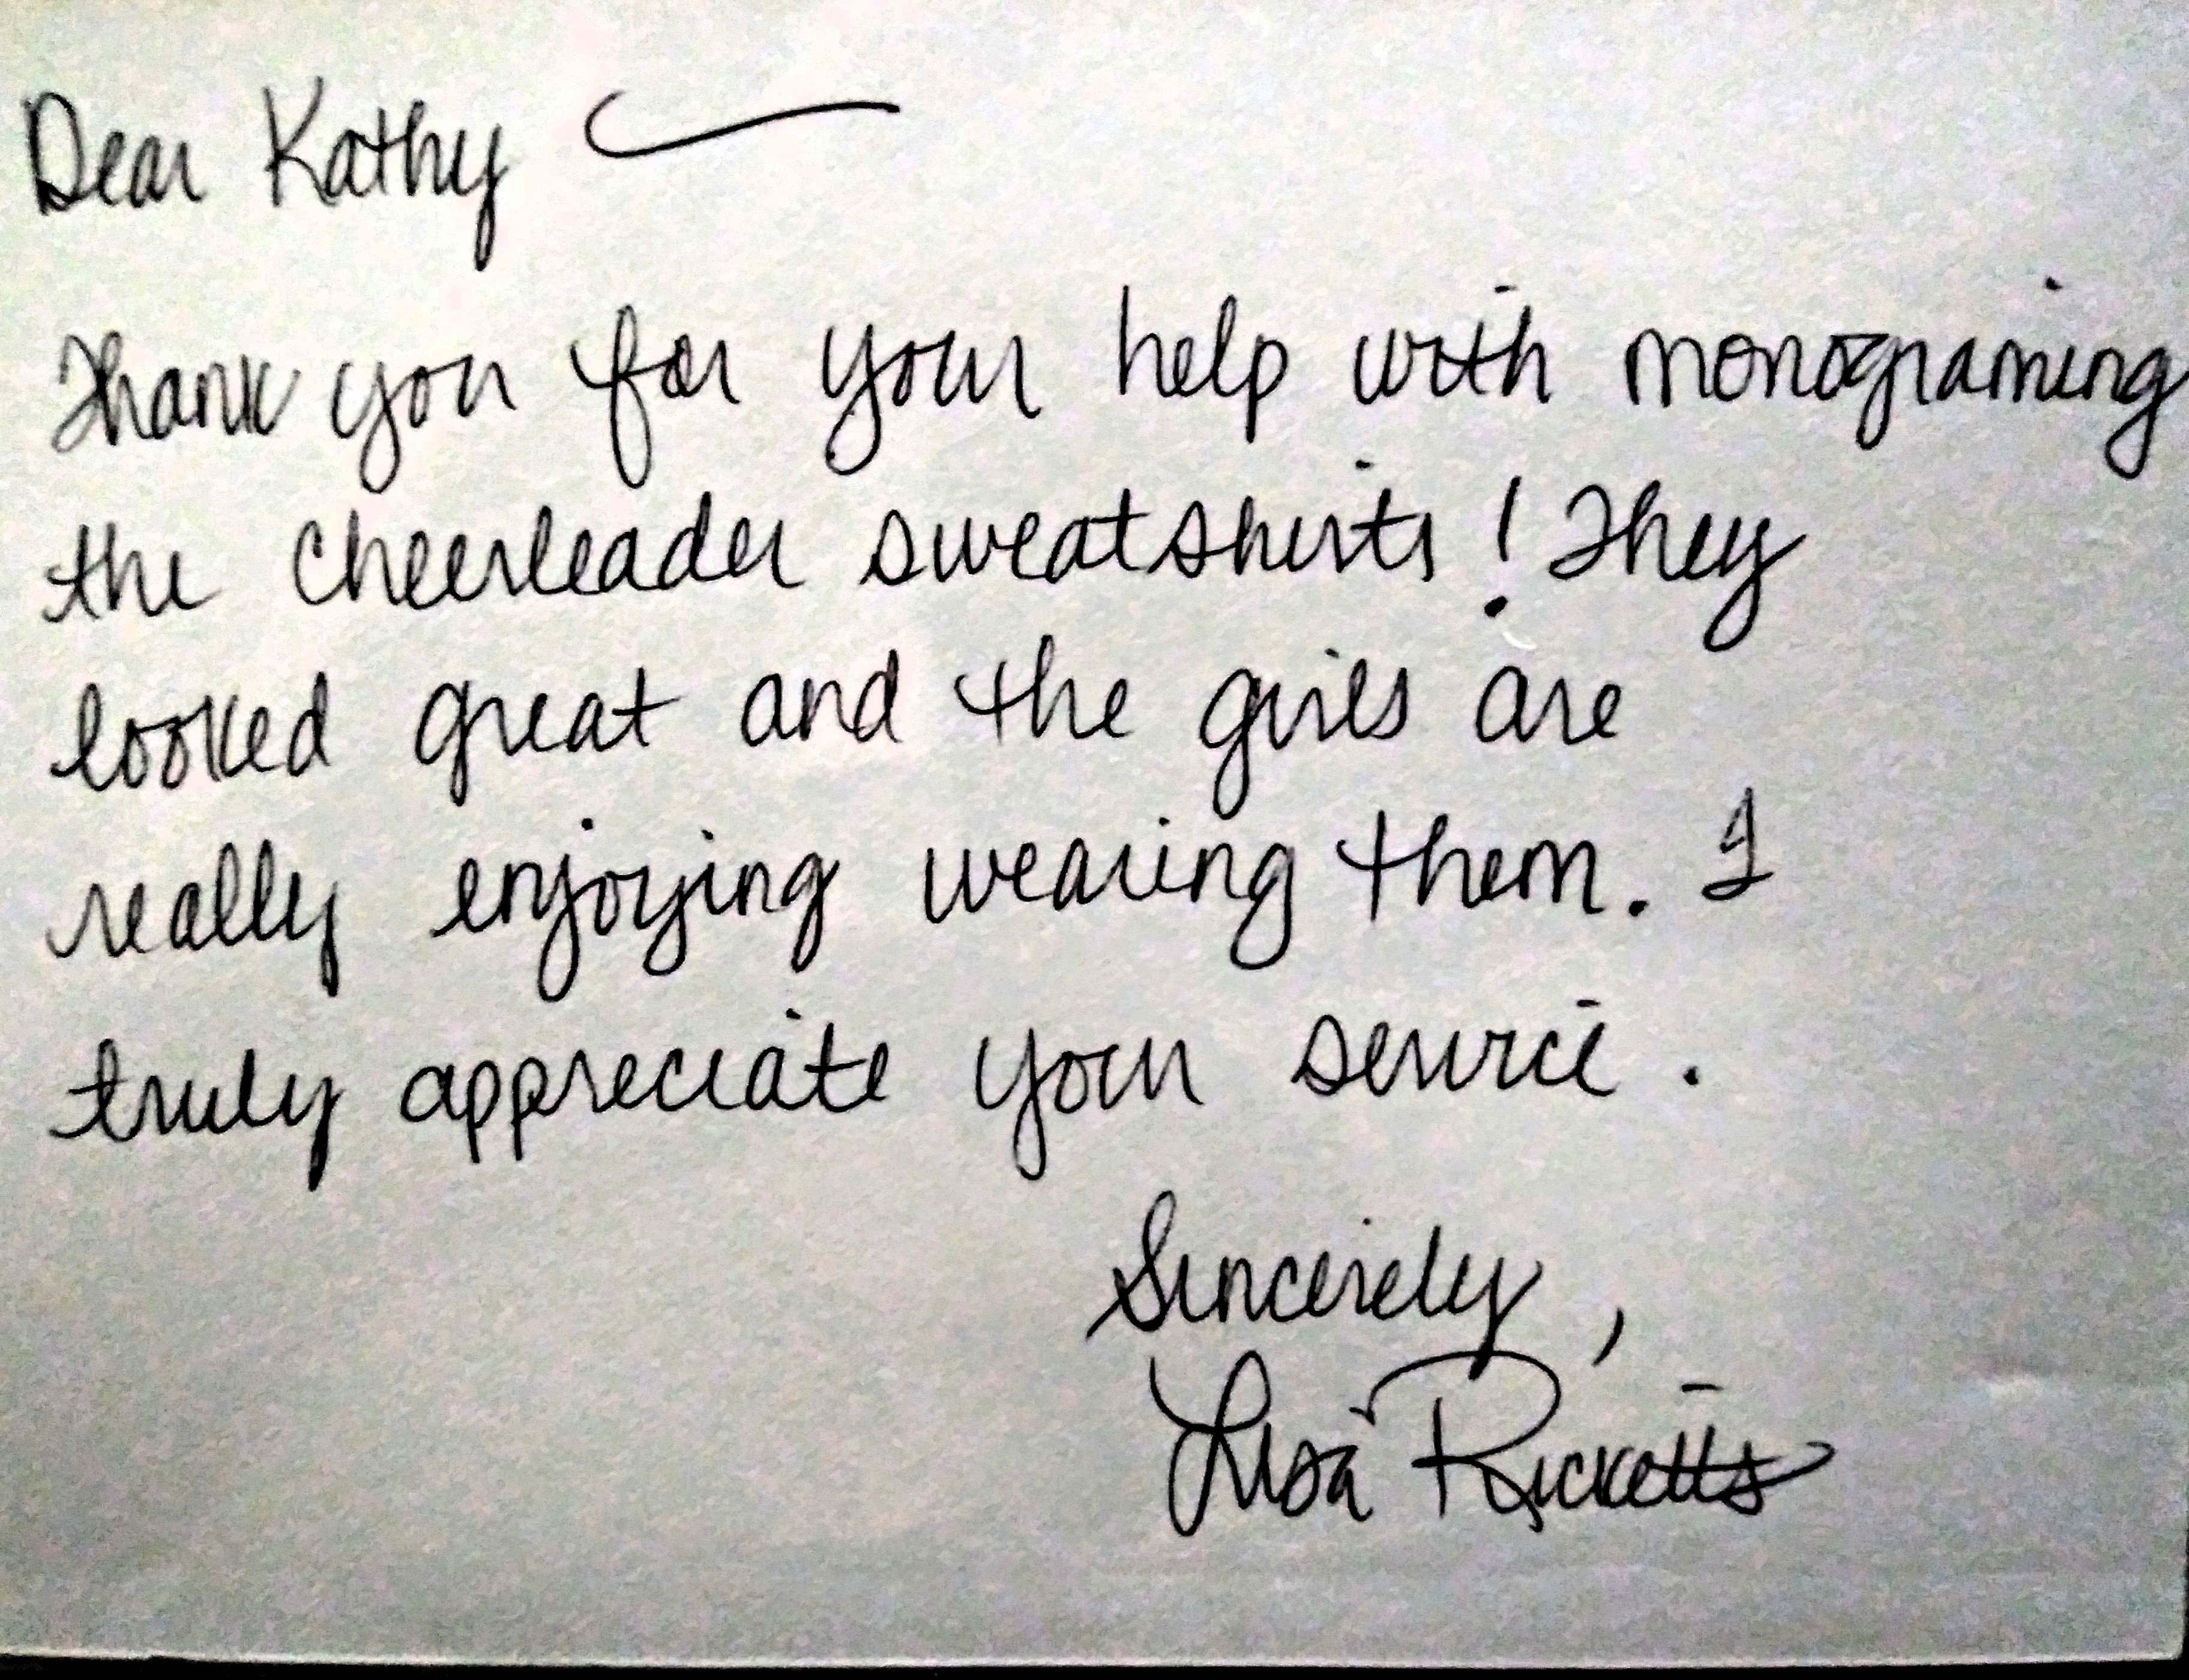 Dear Kathy —
Thank you for your help with monograming
the cheerleader sweatshirts! They
looked great and the girls are
really enjoying wearing them. I
truly appreciate your service.
Sincerely,
Lisa Ricketts